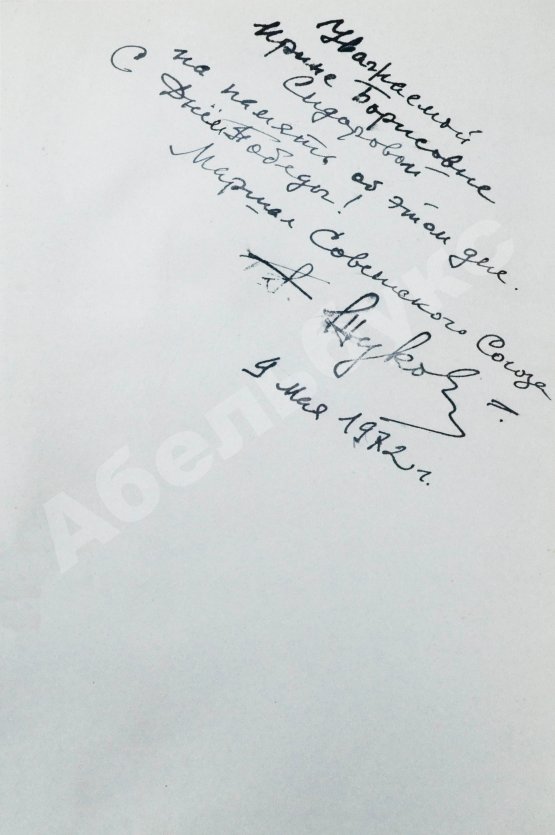 Уважаемой
Ирине Борисовне
Сидоровой
на память об этом дне.
С Днём Победы!
Маршал Советского Союза
Г. Жуков
9 мая 1972 г.
Абельбукс